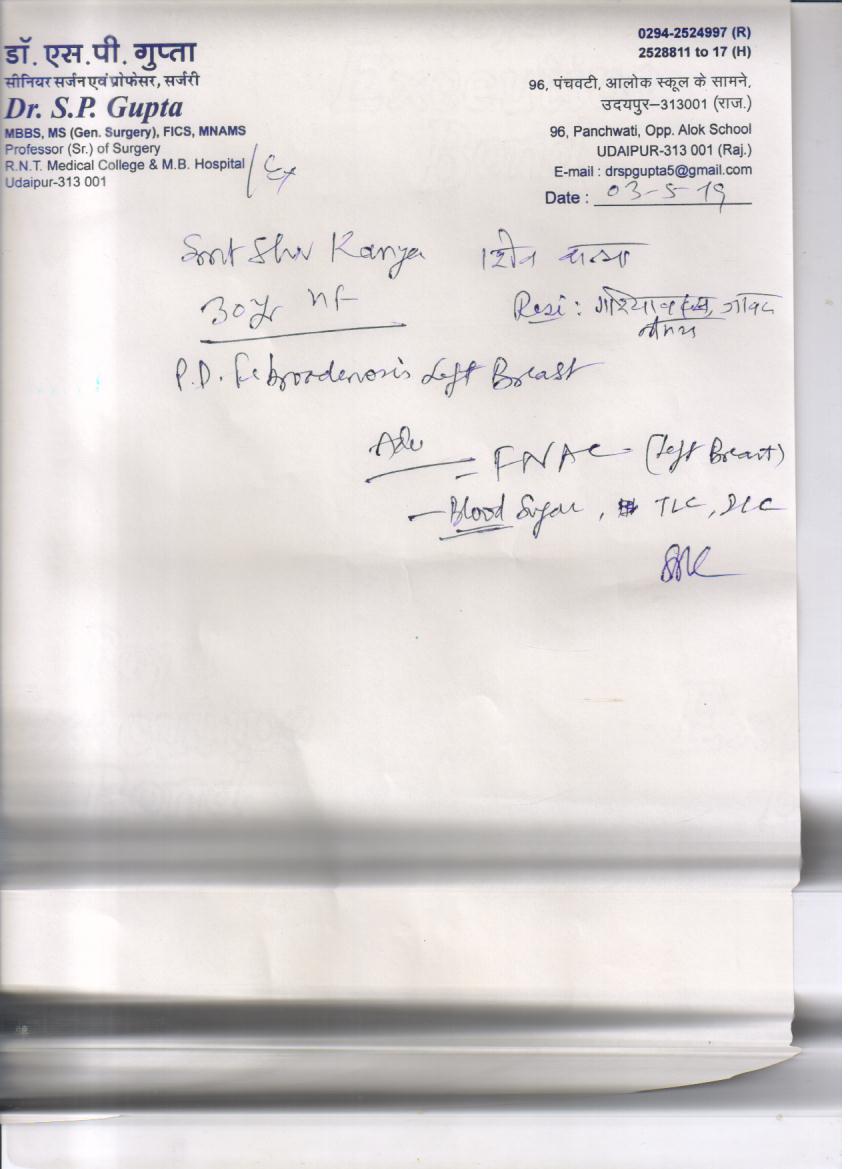 डॉ. एस.पी. गुप्ता
सीनियर सर्जन एवं प्रोफेसर, सर्जरी
Dr. S.P. Gupta
MBBS, MS (Gen. Surgery), FICS, MNAMS
Professor (Sr.) of Surgery
R.N.T. Medical College & M.B. Hospital / Ex
Udaipur-313 001
0294-2524997 (R)
2528811 to 17 (H)
96, पंचवटी, आलोक स्कूल के सामने,
उदयपुर–313001 (राज.)
96, Panchwati, Opp. Alok School
UDAIPUR-313 001 (Raj.)
E-mail : drspgupta5@gmail.com
Date : 03-5-19
Smt Shiv Kanya शिव कन्या
30yr
Resi :
P.D. Fibroadenosis Left Breast
Adv
= FNAC (Left Breast)
– Blood Sugar, TLC, DLC